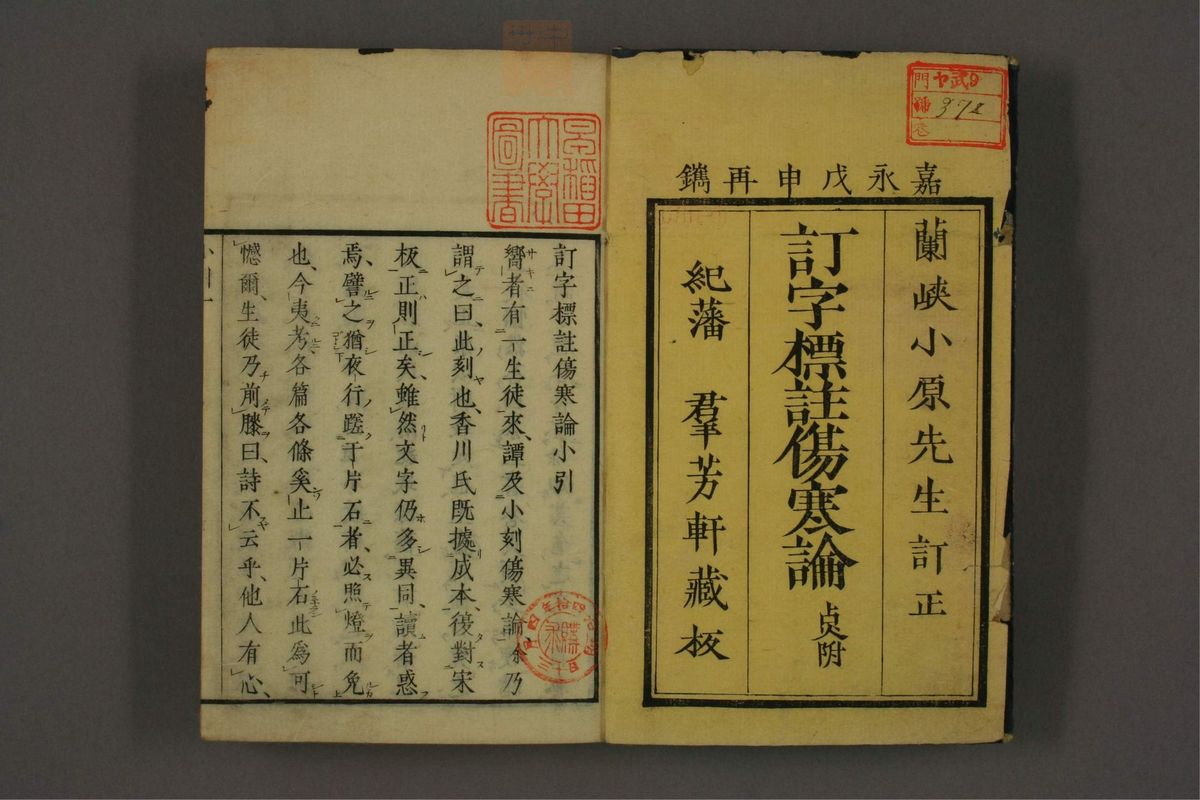 嘉永戊申再鐫
蘭峽小原先生訂正
訂字標註傷寒論 貞附
紀藩 羣芳軒藏板
門 ヤ武9
號 372
卷
早稲田大學圖書
訂字標註傷寒論小引
嚮者有一生徒來、譚及小刻傷寒論、余乃
謂之曰、此刻也、香川氏既據成本、復對宋
板正則正矣、雖然文字仍多異同、讀者惑
焉、譬之猶夜行蹉于片石者、必照燈而免
也、今夷考各篇各條、奚止一片石、此爲可
憾爾、生徒乃前膝曰、詩不云乎、他人有心、